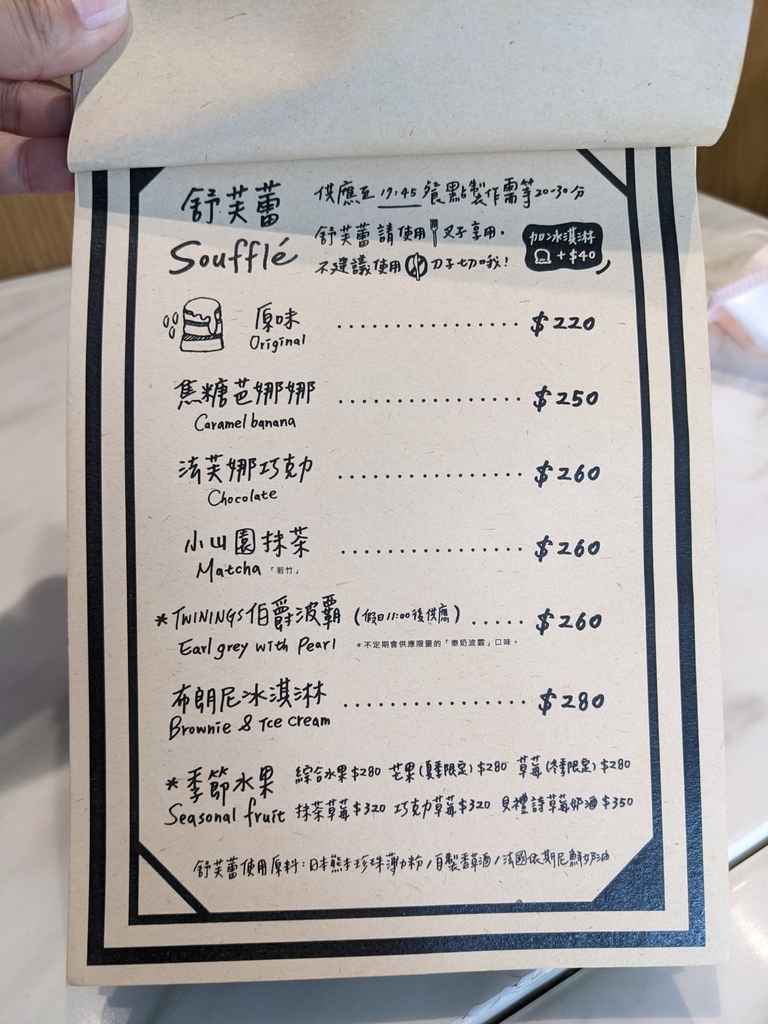 舒芙蕾
Soufflé
供應至 17:45 餐點製作需等20-30分
舒芙蕾請使用 叉子享用.
不建議使用 刀子切哦!
加冰淇淋
+$40
原味 .................. $220
Original
焦糖芭娜娜 .................. $250
Caramel banana
法芙娜巧克力 .................. $260
Chocolate
小山園抹茶 .................. $260
Matcha 「若竹」
*TWININGS伯爵波霸 (假日11:00後供應) ..... $260
Earl grey with Pearl *不定期會供應限量的「泰奶波霸」口味。
布朗尼冰淇淋 .................. $280
Brownie & Ice cream
*季節水果 綜合水果$280 芒果(夏季限定)$280 草莓(冬季限定)$280
Seasonal fruit 抹茶草莓$320 巧克力草莓$320 貝禮詩草莓奶酒$350
舒芙蕾使用原料:日本熊本珍珠薄力粉/自製香草酒/法國依斯尼鮮奶油